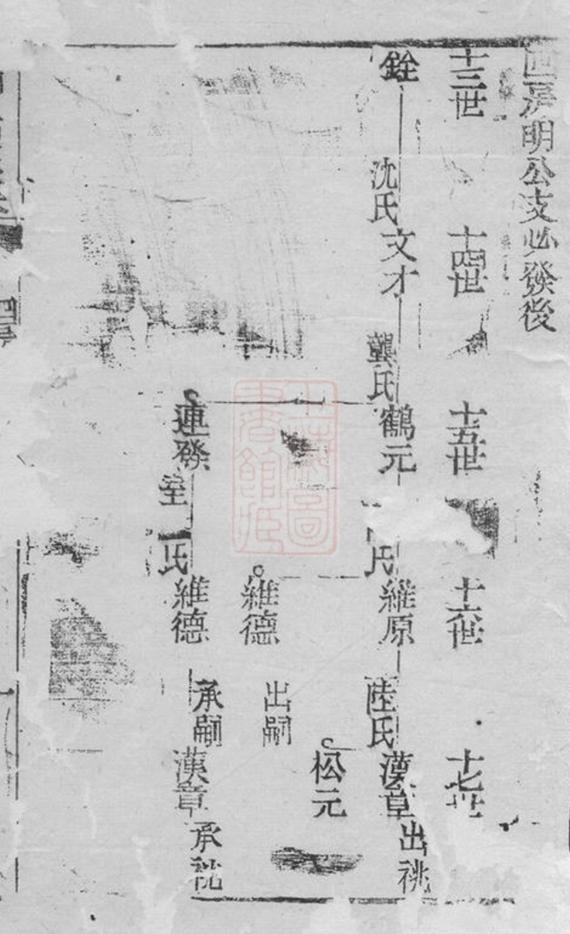 四房明公支必發後
十三世 十四世 十五世 十六世 十七世
銓 沈氏 文才 龔氏 鶴元 氏 維原 陸氏 漢章 出祧
松元
維德 出嗣
連發 室 氏 維德 承嗣 漢章 承祧
上海圖書館藏